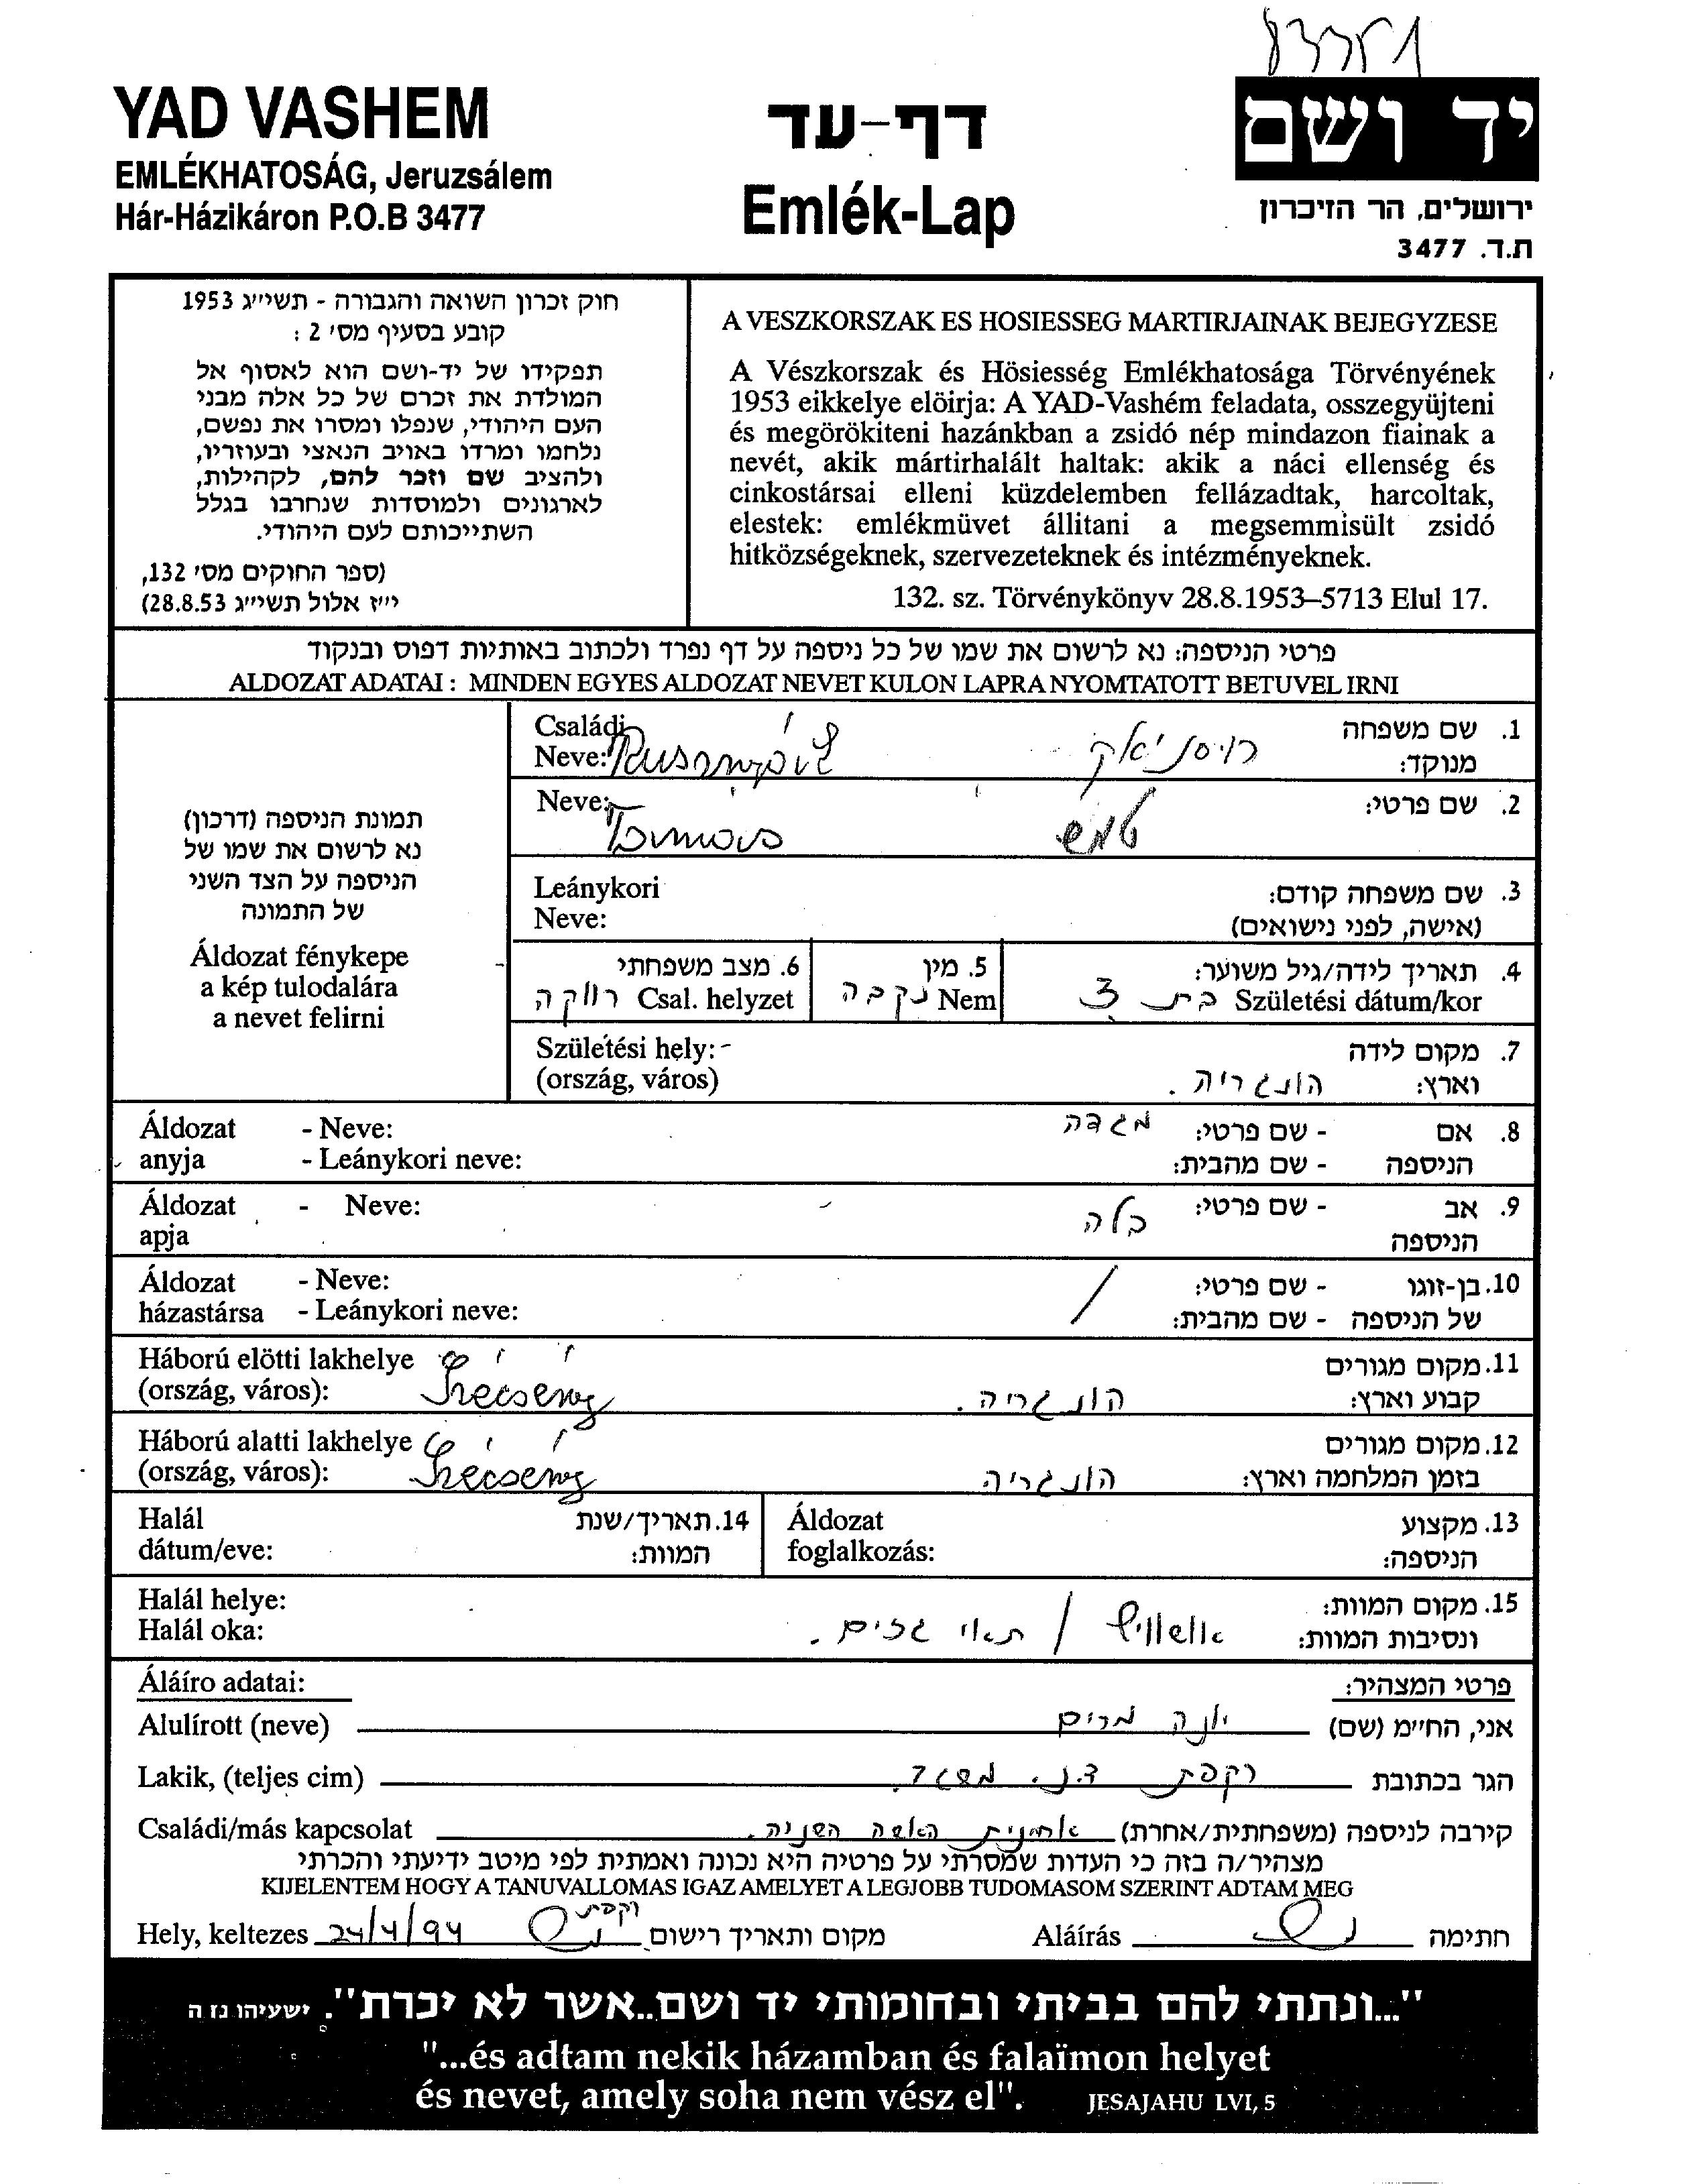 YAD VASHEM
EMLÉKHATOSÁG, Jeruzsálem
Hár-Házikáron P.O.B 3477
דף-עד
Emlék-Lap
יד ושם
ירושלים, הר הזיכרון
ת.ד. 3477
חוק זכרון השואה והגבורה - תשי״ג 1953
קובע בסעיף מס׳ 2 :
תפקידו של יד-ושם הוא לאסוף אל
המולדת את זכרם של כל אלה מבני
העם היהודי, שנפלו ומסרו את נפשם,
נלחמו ומרדו באויב הנאצי ובעוזריו,
ולהציב שם וזכר להם, לקהילות,
לארגונים ולמוסדות שנחרבו בגלל
השתייכותם לעם היהודי.
(ספר החוקים מס׳ 132,
י״ז אלול תשי״ג 28.8.53)
A VESZKORSZAK ES HOSIESSEG MARTIRJAINAK BEJEGYZESE
A Vészkorszak és Hösiesség Emlékhatosága Törvényének
1953 eikkelye elöirja: A YAD-Vashém feladata, osszegyüjteni
és megörökiteni hazánkban a zsidó nép mindazon fiainak a
nevét, akik mártirhalált haltak: akik a náci ellenség és
cinkostársai elleni küzdelemben fellázadtak, harcoltak,
elestek: emlékmüvet állitani a megsemmisült zsidó
hitközségeknek, szervezeteknek és intézményeknek.
132. sz. Törvénykönyv 28.8.1953–5713 Elul 17.
פרטי הניספה: נא לרשום את שמו של כל ניספה על דף נפרד ולכתוב באותיות דפוס ובנקוד
ALDOZAT ADATAI : MINDEN EGYES ALDOZAT NEVET KULON LAPRA NYOMTATOTT BETUVEL IRNI
תמונת הניספה (דרכון)
נא לרשום את שמו של
הניספה על הצד השני
של התמונה
Áldozat fénykepe
a kép tulodalára
a nevet felirni
1. שם משפחה
מנוקד: רוסניאק
Családi
Neve:
2. שם פרטי: טמש
Neve: Tamás
3. שם משפחה קודם:
(אישה, לפני נישואים)
Leánykori
Neve:
4. תאריך לידה/גיל משוער:
Születési dátum/kor בת 3
5. מין
Nem נקבה
6. מצב משפחתי
Csal. helyzet רווקה
7. מקום לידה
וארץ: הונגריה.
Születési hely:
(ország, város)
8. אם - שם פרטי: מגדה
הניספה - שם מהבית:
Áldozat - Neve:
anyja - Leánykori neve:
9. אב - שם פרטי: בלה
הניספה
Áldozat - Neve:
apja
10. בן-זוגו - שם פרטי: /
של הניספה - שם מהבית:
Áldozat - Neve:
házastársa - Leánykori neve:
11. מקום מגורים
קבוע וארץ: הונגריה.
Háború elötti lakhelye
(ország, város): Szécsény
12. מקום מגורים
בזמן המלחמה וארץ: הונגריה
Háború alatti lakhelye
(ország, város): Szécsény
13. מקצוע
הניספה:
Áldozat
foglalkozás:
14. תאריך/שנת
המוות:
Halál
dátum/eve:
15. מקום המוות:
ונסיבות המוות: אושוויץ / תאי גזים.
Halál helye:
Halál oka:
פרטי המצהיר:
Áláíro adatai:
אני, הח״מ (שם) יונה מרים
Alulírott (neve)
הגר בכתובת רקפת ד.נ. משגב.
Lakik, (teljes cim)
קירבה לניספה (משפחתית/אחרת) אחינית האשה השניה.
Családi/más kapcsolat
מצהיר/ה בזה כי העדות שמסרתי על פרטיה היא נכונה ואמתית לפי מיטב ידיעתי והכרתי
KIJELENTEM HOGY A TANUVALLOMAS IGAZ AMELYET A LEGJOBB TUDOMASOM SZERINT ADTAM MEG
Hely, keltezes 24/4/94 רקפת מקום ותאריך רישום
Aláírás חתימה
"...ונתתי להם בביתי ובחומותי יד ושם..אשר לא יכרת". ישעיהו נז ה
"...és adtam nekik házamban és falaïmon helyet
és nevet, amely soha nem vész el". JESAJAHU LVI, 5